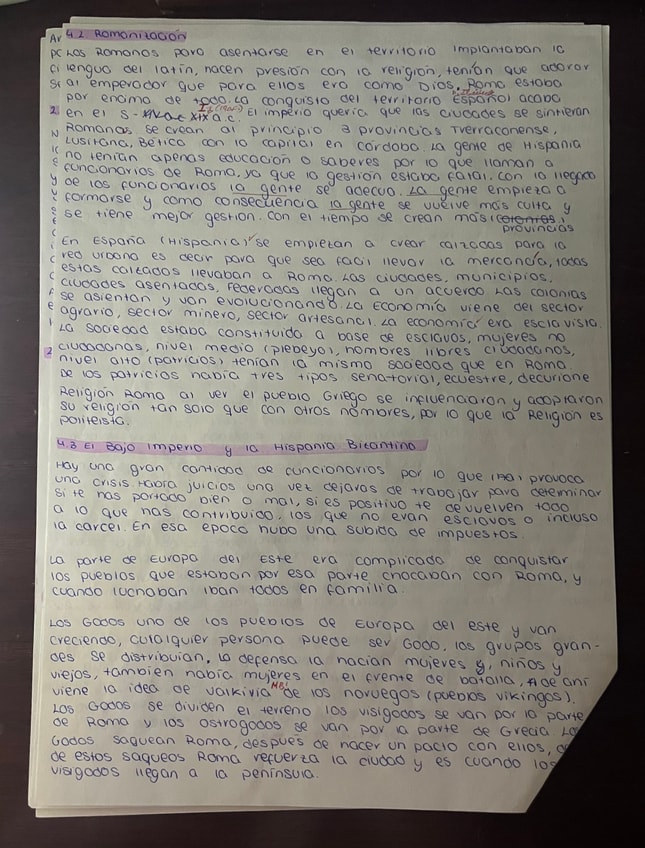 4.2 Romanización
Los Romanos para asentarse en el territorio implantaban la
lengua del latín, hacen presión con la religión, tenían que adorar
al emperador que para ellos era como Dios. Roma estaba
por encima de todo. La conquista del territorio Español acaba
en el S- XIX a.c. El imperio quería que las ciudades se sintieran
Romanas se crean al principio 3 provincias Trerraconense,
Lusitana, Betica con la capital en Córdoba. La gente de Hispania
no tenían apenas educación o saberes por lo que llaman a
funcionarios de Roma, ya que la gestión estaba fatal. Con la llegada
de los funcionarios la gente se adecua. La gente empieza a
formarse y como consecuencia la gente se vuelve más culta y
se tiene mejor gestión. Con el tiempo se crean más (colonias)
provincias
En España (Hispania) se empiezan a crear calzadas para la
red urbana es decir para que sea facil llevar la mercancía, todas
estas calzadas llevaban a Roma. Las ciudades, municipios,
ciudades asentadas, federadas llegan a un acuerdo. Las colonias
se asientan y van evolucionando. La Economía viene del sector
agrario, sector minero, sector artesanal. La economía era esclavista.
La sociedad estaba constituida a base de esclavos, mujeres no
ciudadanas, nivel medio (plebeyo), hombres libres ciudadanos,
nivel alto (patricios) tenían la misma sociedad que en Roma.
De los patricios había tres tipos senatorial, ecuestre, decurione
Religión Roma al ver el pueblo Griego se influenciaron y adaptaron
su religión tan solo que con otros nombres, por lo que la Religion es
politeista.
4.3 El Bajo Imperio y la Hispania Bizantina
Hay una gran cantidad de funcionarios por lo que provoca
una crisis. Habra juicios una vez dejaras de trabajar para determinar
si te has portado bien o mal, si es positivo te devuelven todo
a lo que has contribuido, los que no evan esclavos o incluso
la carcel. En esa epoca hubo una subida de impuestos.
La parte de Europa del Este era complicado de conquistar
los pueblos que estaban por esa parte chocaban con Roma, y
cuando luchaban iban todos en familia.
Los Godos uno de los pueblos de Europa del este y van
creciendo, cualquier persona puede ser Godo, los grupos gran-
des se distribuían. La defensa la hacían mujeres y, niños y
viejos, tambien había mujeres en el frente de batalla, de ahí
viene la idea de valkiria de los noruegos (pueblos vikingos).
Los Godos se dividen el terreno los visigodos se van por la parte
de Roma y los ostrogodos se van por la parte de Grecia. Los
Godos saquean Roma, después de hacer un pacto con ellos,
de estos saqueos Roma refuerza la ciudad y es cuando los
visigodos llegan a la península.